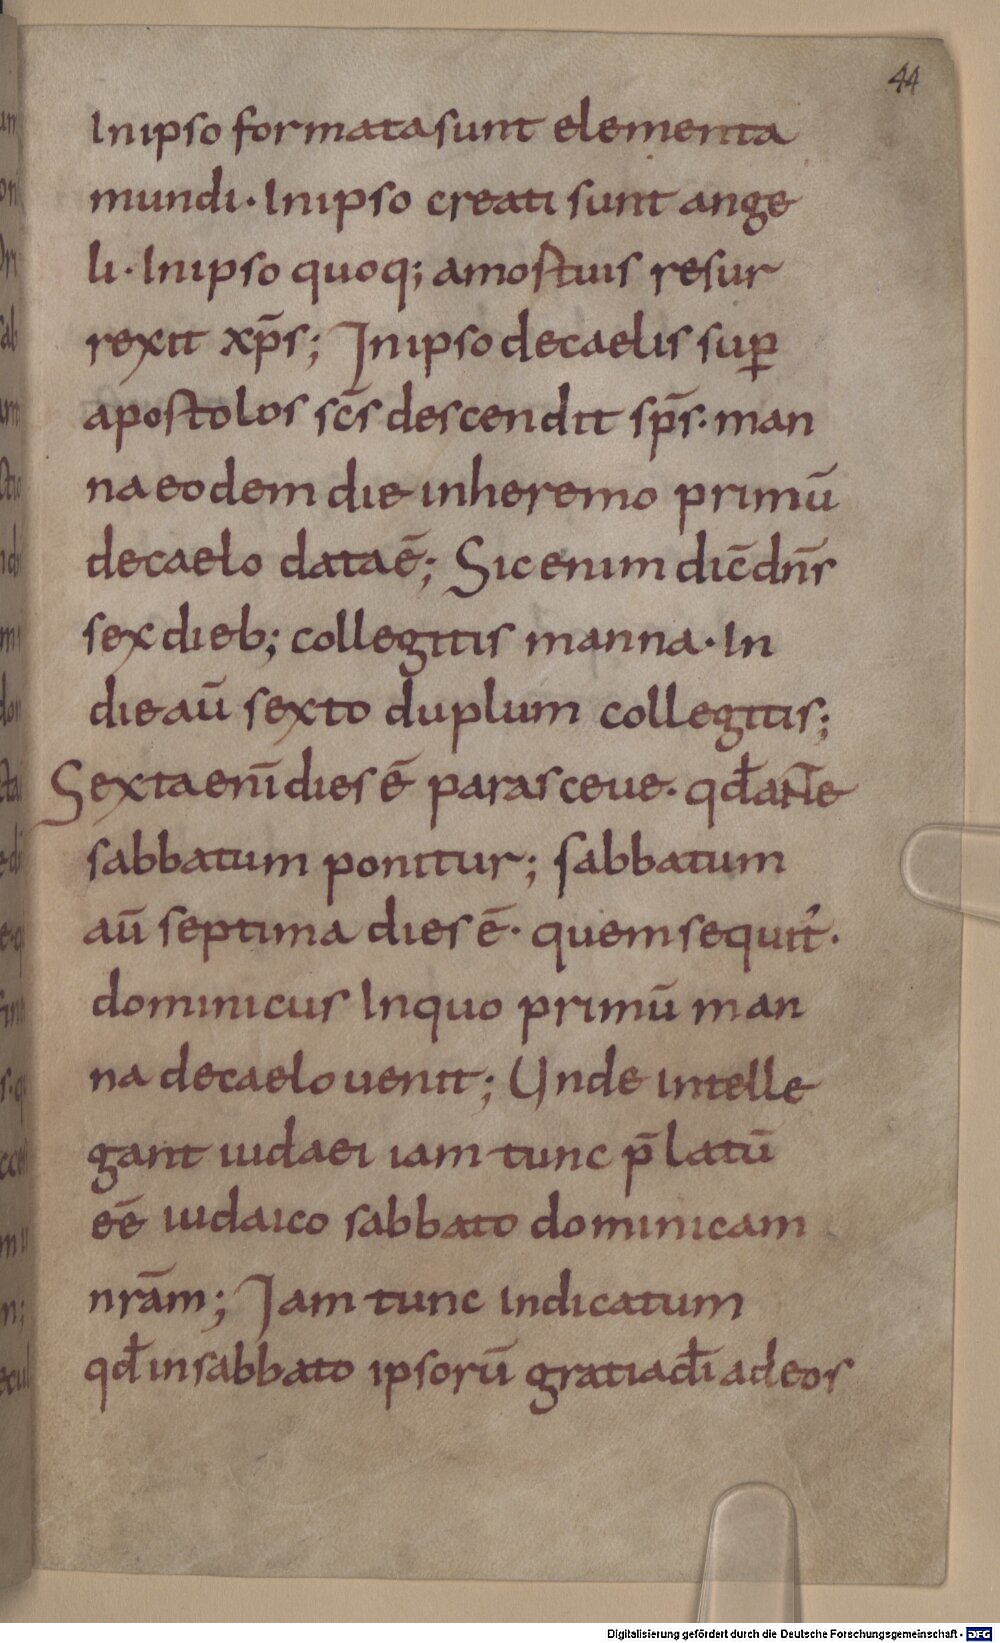 44
Inipso formata sunt elementa
mundi · Inipso creati sunt ange
li · Inipso quoq; amortuis resur
rexit xp̄s; Inipso decaelis suꝑ
apostolos sc̄s descendit sp̄s · man
na eodem die inheremo primū
decaelo data ē; Sic enim dic̄ dn̄s
sex dieb; collegitis manna · In
die aū sexto duplum collegitis;
Sexta enī dies ē parasceue · qđ ante
sabbatum ponitur; sabbatum
aū septima dies ē · quem sequit᾿ ·
dominicus Inquo primū man
na decaelo uenit; Unde intelle
gant iudaei iam tunc p̄latū
eē iudaico sabbato dominicam
nr̄am; Iam tunc indicatum
qđ insabbato ipsorū gratia dī ad eos
Digitalisierung gefördert durch die Deutsche Forschungsgemeinschaft - DFG